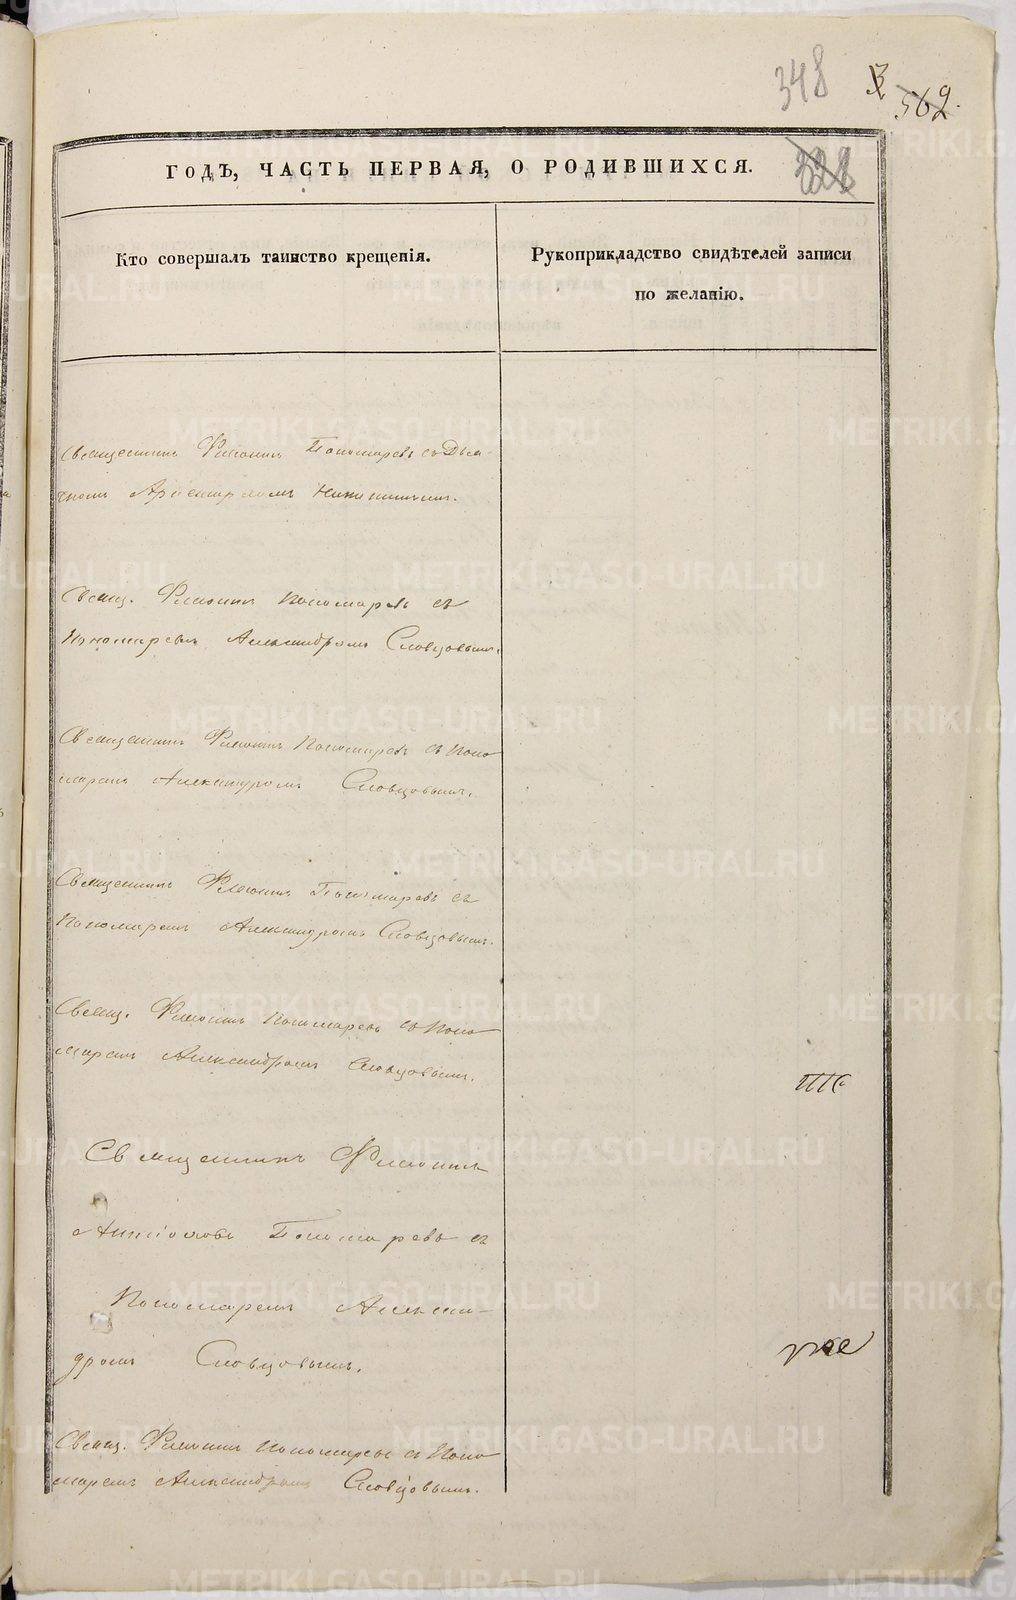 348
562.
ГОДЪ, ЧАСТЬ ПЕРВАЯ, О РОДИВШИХСЯ.
Кто совершалъ таинство крещенія.
Рукоприкладство свидѣтелей записи
по желанію.
Священникъ Филонилъ Пономаревъ съ Дья-
Никитинымъ.
Свящ. Филонилъ Пономаревъ съ
Пономаремъ Александромъ Словцовымъ.
Священникъ Филонилъ Пономаревъ съ Поно
маремъ Александромъ Словцовымъ.
Священникъ Филонилъ Пономаревъ съ
Пономаремъ Александромъ Словцовымъ.
Свящ. Филонилъ Пономаревъ съ Поно
маремъ Александромъ Словцовымъ.
Священникъ Филонилъ
Пономаревъ съ
Пономаремъ Алексан-
дромъ Словцовымъ.
Свящ. Филонилъ Пономаревъ съ Поно
маремъ Александромъ Словцовымъ.
METRIKI.GASO-URAL.RU